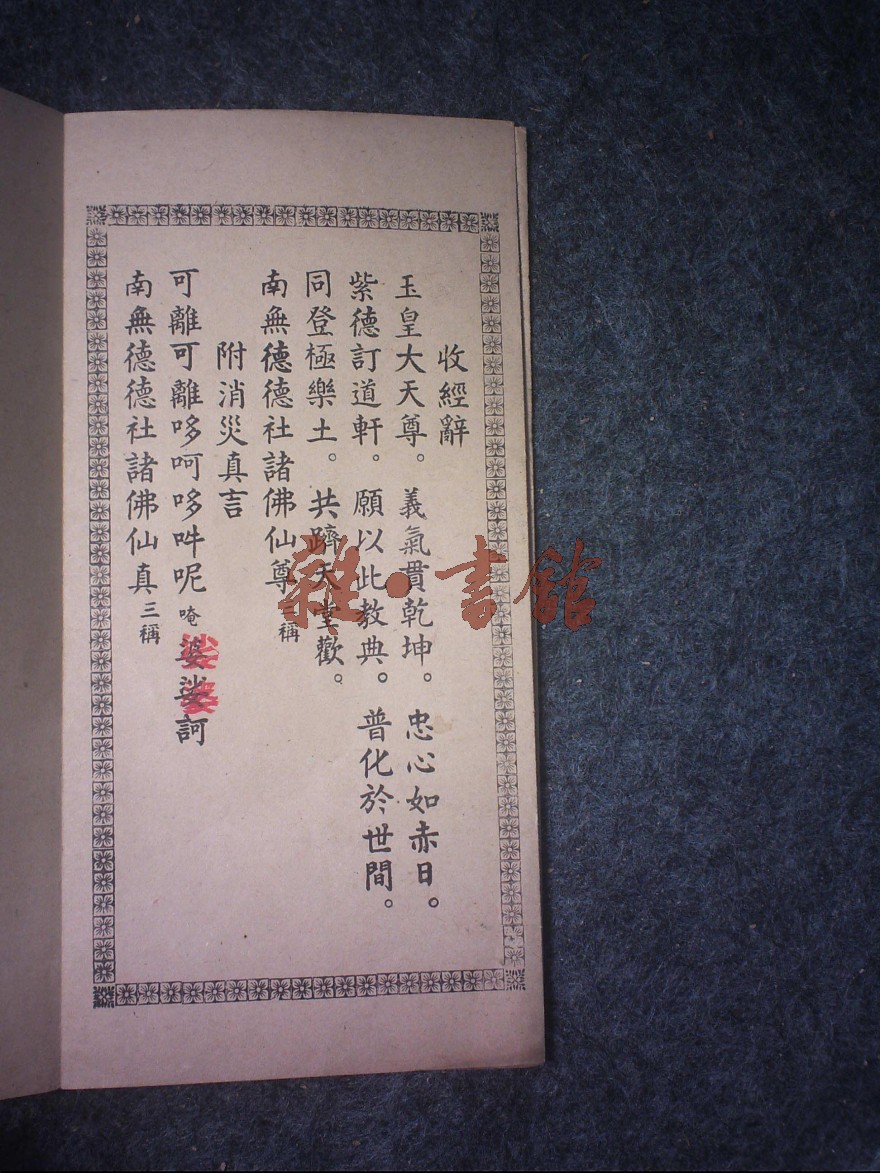 收經辭
玉皇大天尊。義氣貫乾坤。忠心如赤日。
紫德訂道軒。願以此教典。普化於世間。
同登極樂土。共躋天堂歡。
南無德德社諸佛仙尊三稱
附消災真言
可離可離哆呵哆吽呢唵婆娑訶
南無德德社諸佛仙真三稱
雜·書館